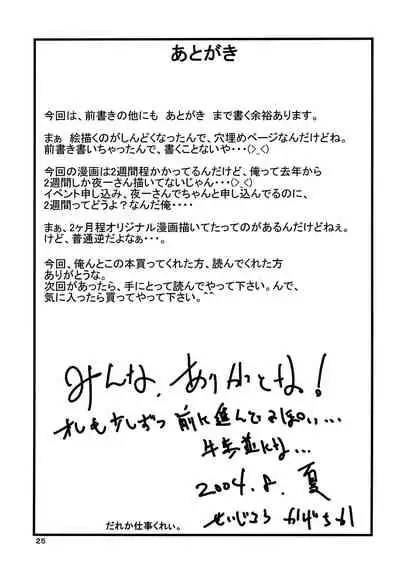 あとがき
今回は、前書きの他にも あとがき まで書く余裕あります。
まぁ 絵描くのがしんどくなったんで、穴埋めページなんだけどね。
前書き書いちゃったんで、書くことないや・・・(>_<)
今回の漫画は2週間程かかってるんだけど、俺って去年から
2週間しか夜一さん描いてないじゃん・・・(>_<)
イベント申し込み、夜一さんでちゃんと申し込んでるのに、
2週間ってどうよ？なんだ俺・・・・
まぁ、2ヶ月程オリジナル漫画描いてたってのがあるんだけどねぇ。
けど、普通逆だよなぁ・・・。
今回、俺んとこの本買ってくれた方、読んでくれた方
ありがとうな。
次回があったら、手にとって読んでやって下さい。んで、
気に入ったら買ってやって下さい。^^
みんな、ありがとな!
オレも少しずつ前に進んでるぽい...
牛歩並にな...
2004.8.夏
せいじ
だれか仕事くれぃ。
25